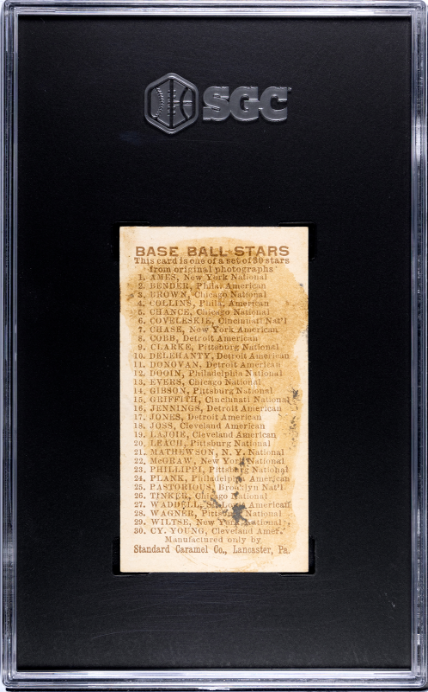 SGC
BASE BALL STARS
This card is one of a set of 30 stars
from original photographs
1. AMES, New York National
2. BENDER, Phila. American
3. BROWN, Chicago National
4. COLLINS, Phila. American
5. CHANCE, Chicago National
6. COVELESKIE, Cincinnati Nat'l
7. CHASE, New York American
8. COBB, Detroit American
9. CLARKE, Pittsburg National
10. DELEHANTY, Detroit American
11. DONOVAN, Detroit American
12. DOOIN, Philadelphia National
13. EVERS, Chicago National
14. GIBSON, Pittsburg National
15. GRIFFITH, Cincinnati National
16. JENNINGS, Detroit American
17. JONES, Detroit American
18. JOSS, Cleveland American
19. LAJOIE, Cleveland American
20. LEACH, Pittsburg National
21. MATHEWSON, N. Y. National
22. McGRAW, New York National
23. PHILLIPPI, Pittsburg National
24. PLANK, Philadelphia American
25. PASTORIOUS, Brooklyn Nat'l
26. TINKER, Chicago National
27. WADDELL, St. Louis American
28. WAGNER, Pittsburg National
29. WILTSE, New York National
30. CY. YOUNG, Cleveland Amer.
Manufactured only by
Standard Caramel Co., Lancaster, Pa.